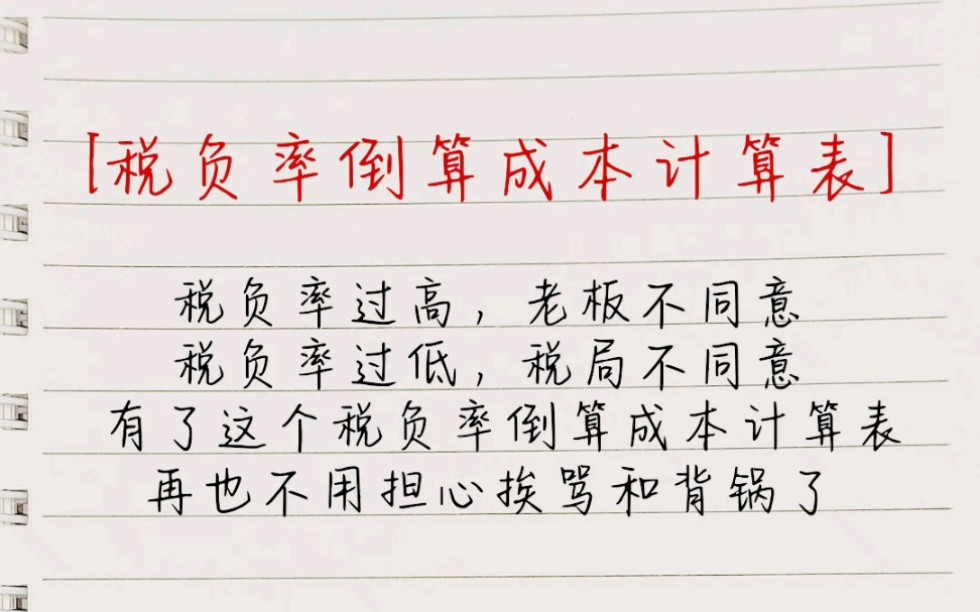 [税负率倒算成本计算表]
税负率过高，老板不同意
税负率过低，税局不同意
有了这个税负率倒算成本计算表
再也不用担心挨骂和背锅了